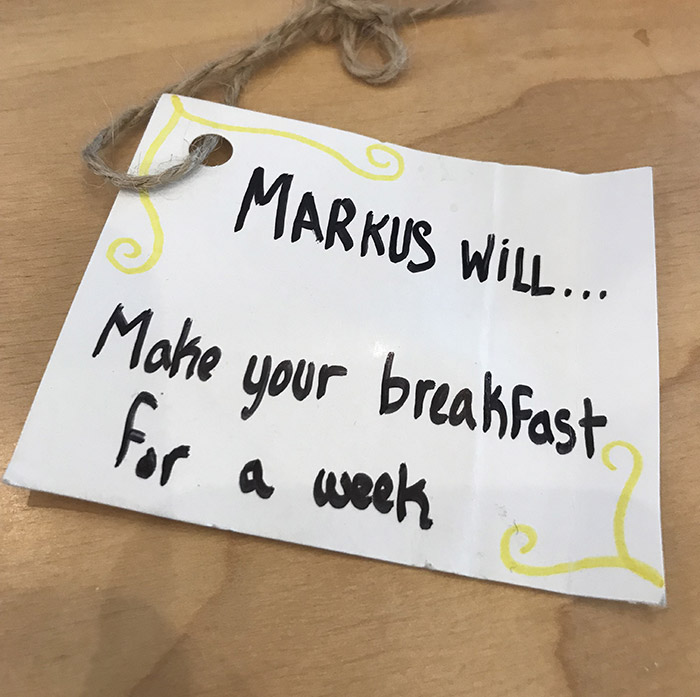 MARKUS WiLL...
Make your breakfast
for a week